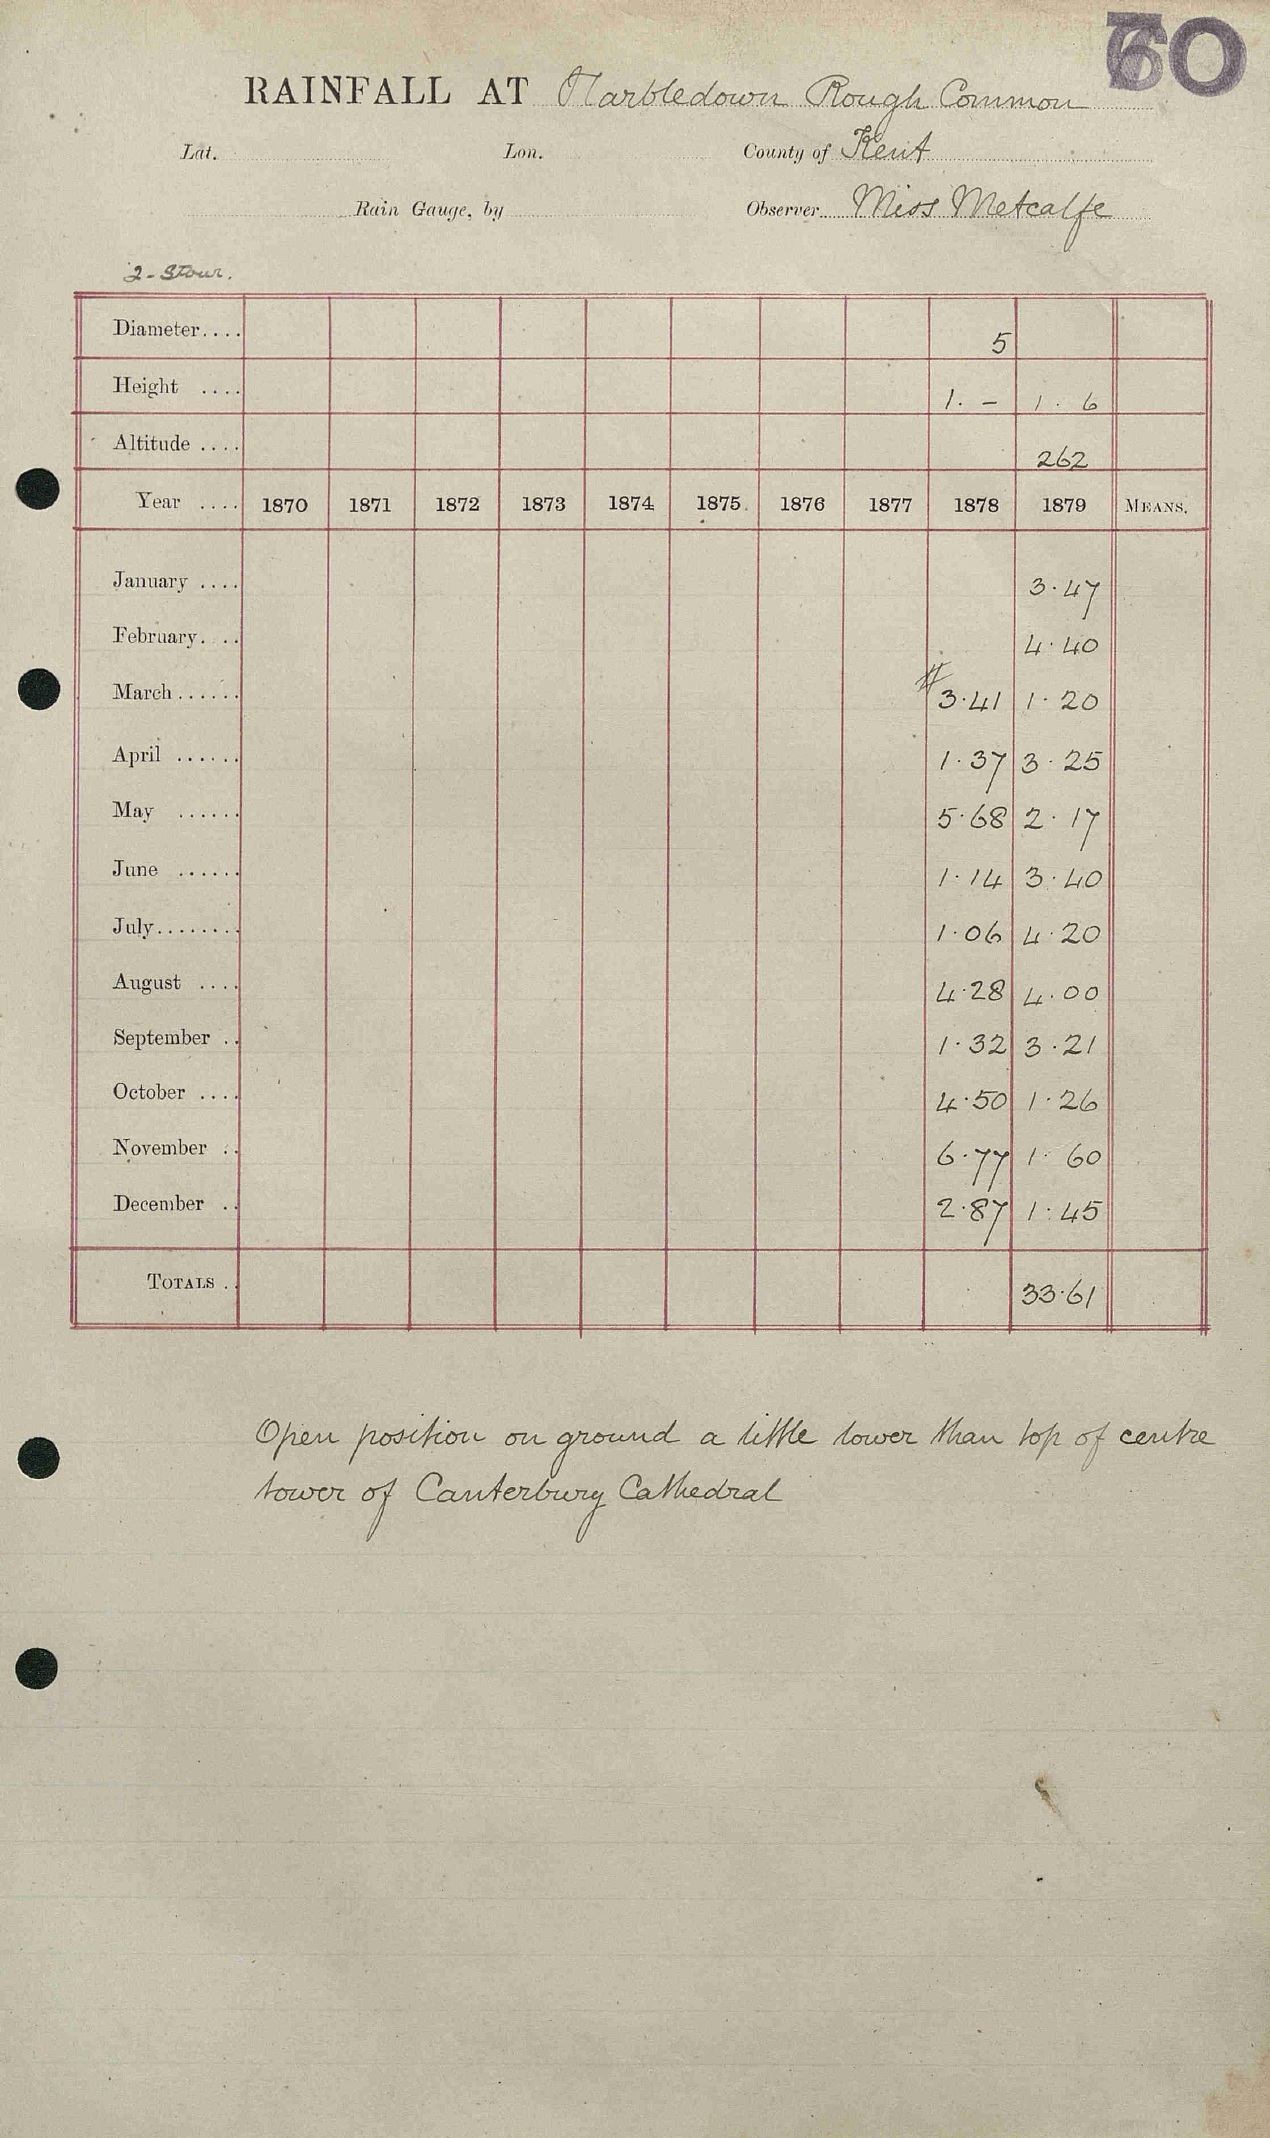 60
RAINFALL AT Harbledown Rough Common
Lat. Lon. County of Kent
Rain Gauge, by Observer Miss Metcalfe
2-Stour.
Diameter.... 5
Height .... 1. – 1. 6
Altitude .... 262
Year .... 1870 1871 1872 1873 1874 1875 1876 1877 1878 1879 MEANS.
January .... 3.47
February.... 4.40
March...... # 3.41 1.20
April ...... 1.37 3.25
May ...... 5.68 2.17
June ...... 1.14 3.40
July........ 1.06 4.20
August .... 4.28 4.00
September .. 1.32 3.21
October .... 4.50 1.26
November .. 6.77 1.60
December .. 2.87 1.45
TOTALS .. 33.61
Open position on ground a little lower than top of centre
tower of Canterbury Cathedral